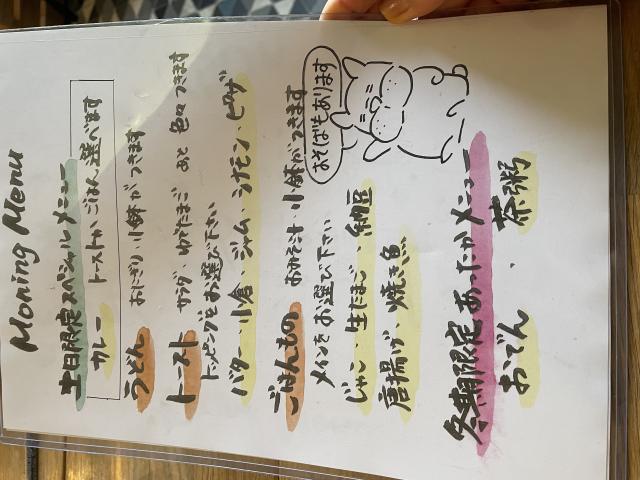 Moning Menu
土日限定スペシャルメニュー
カレー トーストかごはん選べます
うどん おにぎり・小鉢がつきます
トースト サラダ・ゆでたまご あと 色々つきます
トッピングをお選び下さい
バター・小倉・ジャム・シナモン・ピザ
ごはんもの おみそ汁・小鉢がつきます
おそばもあります
メインをお選び下さい
じゃこ・生たまご・納豆
唐揚げ・焼き魚
冬期限定あったかメニュー
おでん・茶粥